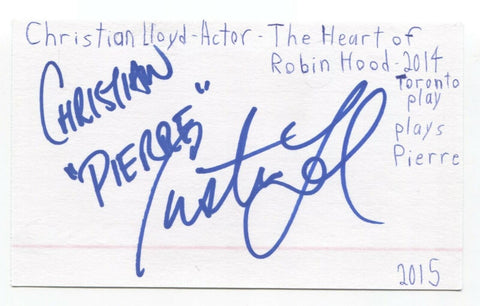 Christian Lloyd-Actor-The Heart of
Robin Hood-2014
Toronto
play
plays
Pierre
CHRISTIAN
"PIERRE"
2015